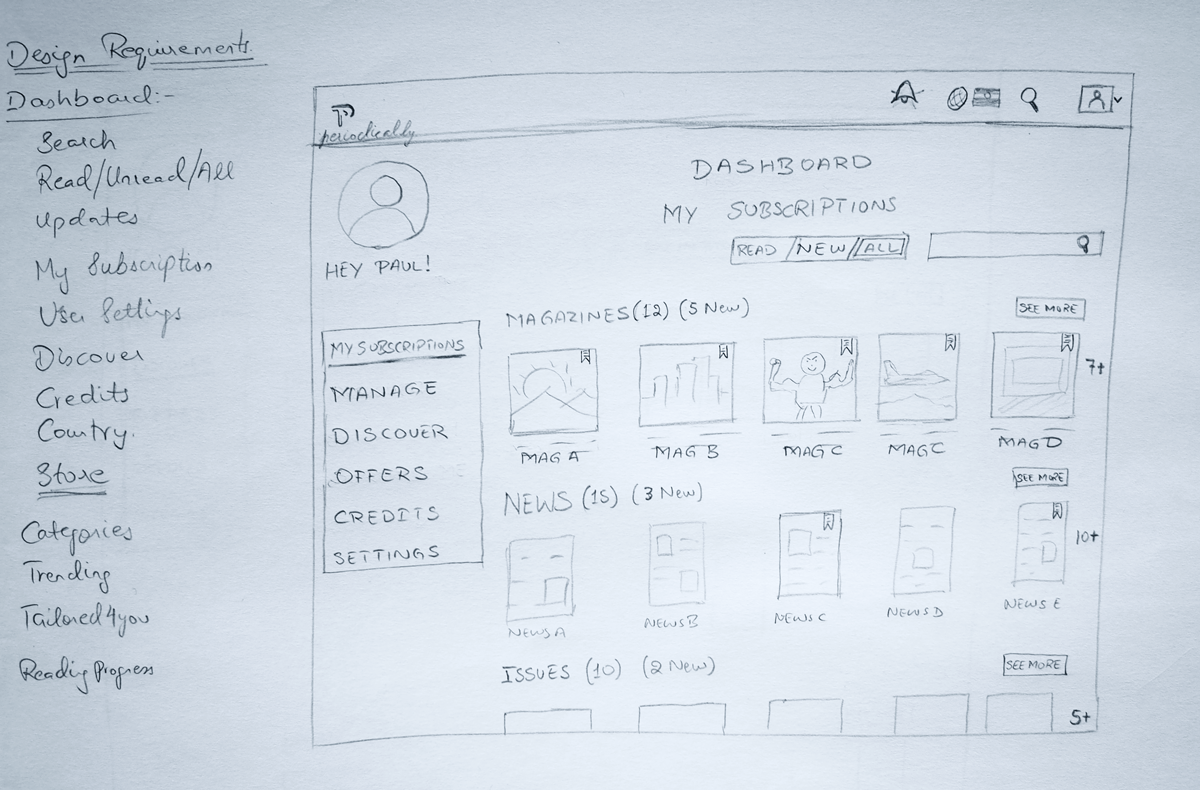 Design Requirements.
Dashboard:-
Search
Read/Unread/All
Updates
My Subscription
User Settings
Discover
Credits
Country.
Store
Categories
Trending
Tailored4you
Reading Progress
periodically
HEY PAUL!
MY SUBSCRIPTIONS
MANAGE
DISCOVER
OFFERS
CREDITS
SETTINGS
DASHBOARD
MY SUBSCRIPTIONS
READ /NEW//ALL
MAGAZINES(12) (5 New)
SEE MORE
7+
MAG A MAG B MAG C MAG C MAG D
NEWS (15) (3 New)
SEE MORE
10+
NEWS A NEWS B NEWS C NEWS D NEWS E
ISSUES (10) (2 New)
SEE MORE
5+